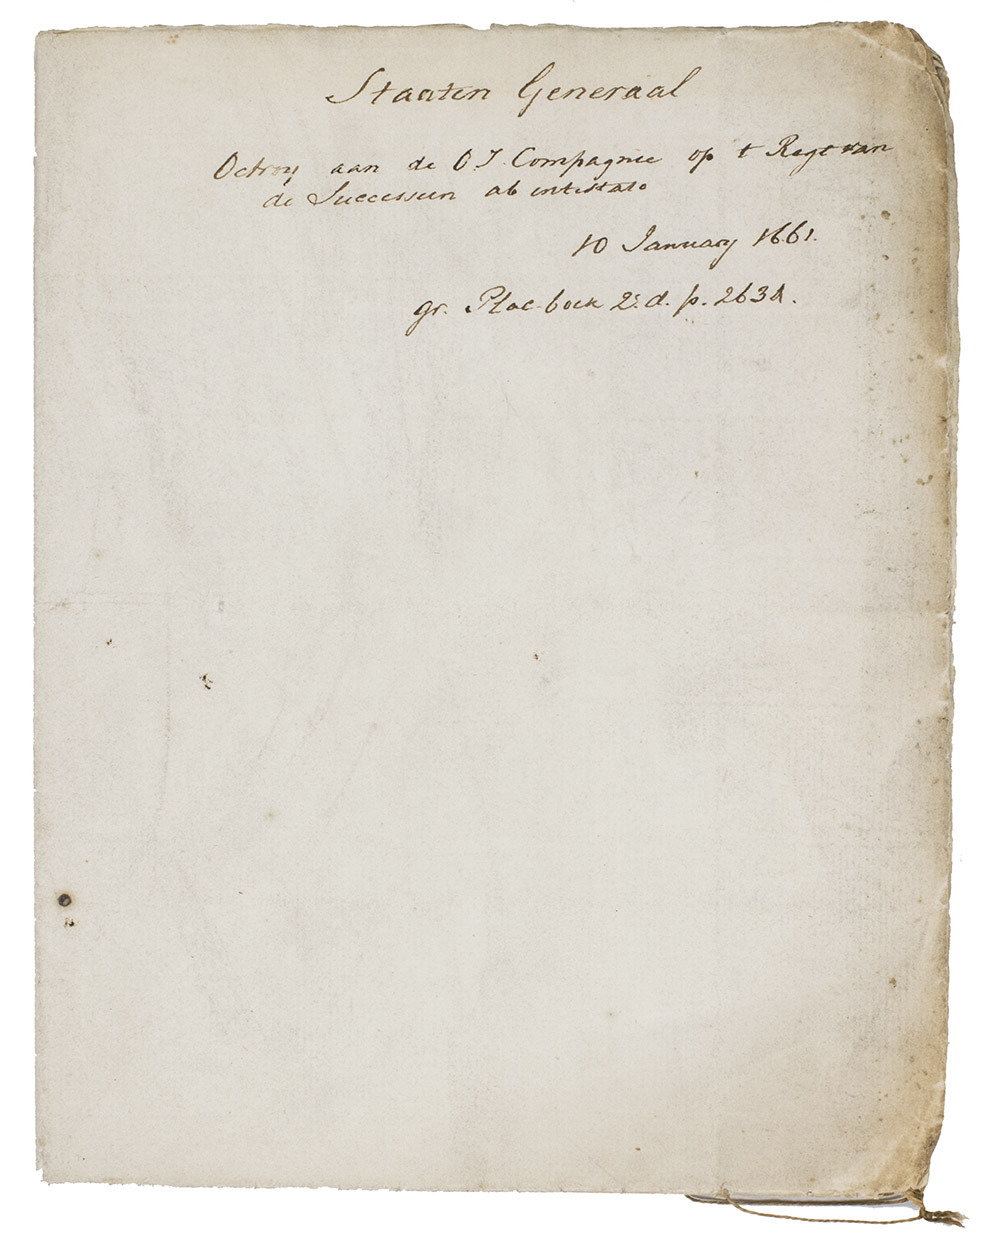 Staaten Generaal
Octroy aan de O. I. Compagnie op t Regt van
de Successien ab intestato
10 January 1661.
gr. Plac-boek 2e. d. p. 2634.